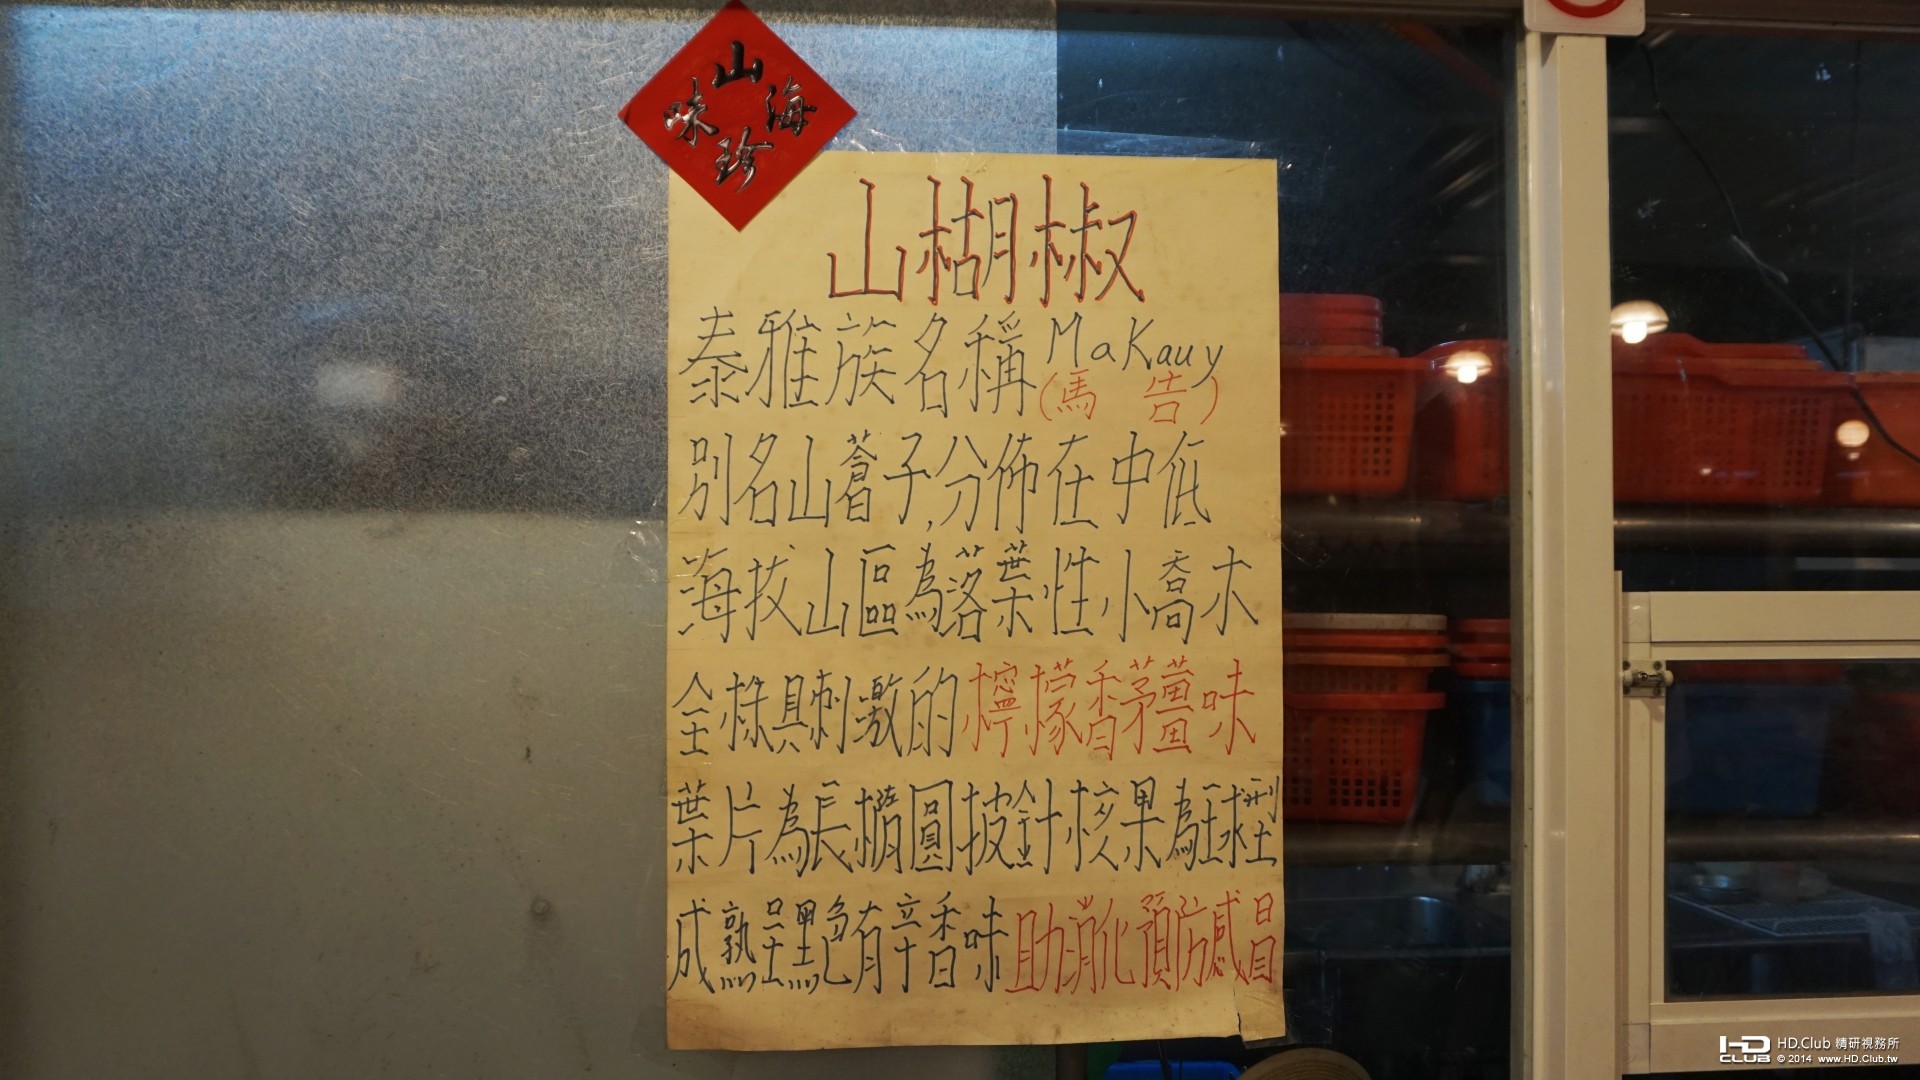 山珍海味
山楜椒
泰雅族名稱Makauy
(馬告)
別名山蒼子,分佈在中低
海拔山區為落葉性小喬木
全株具刺激的檸檬香茅薑味
葉片為長橢圓披針核果為球型
成熟呈黑色有辛香味助消化預防感冒
HD.Club 精研視務所
HD CLUB © 2014 www.HD.Club.tw